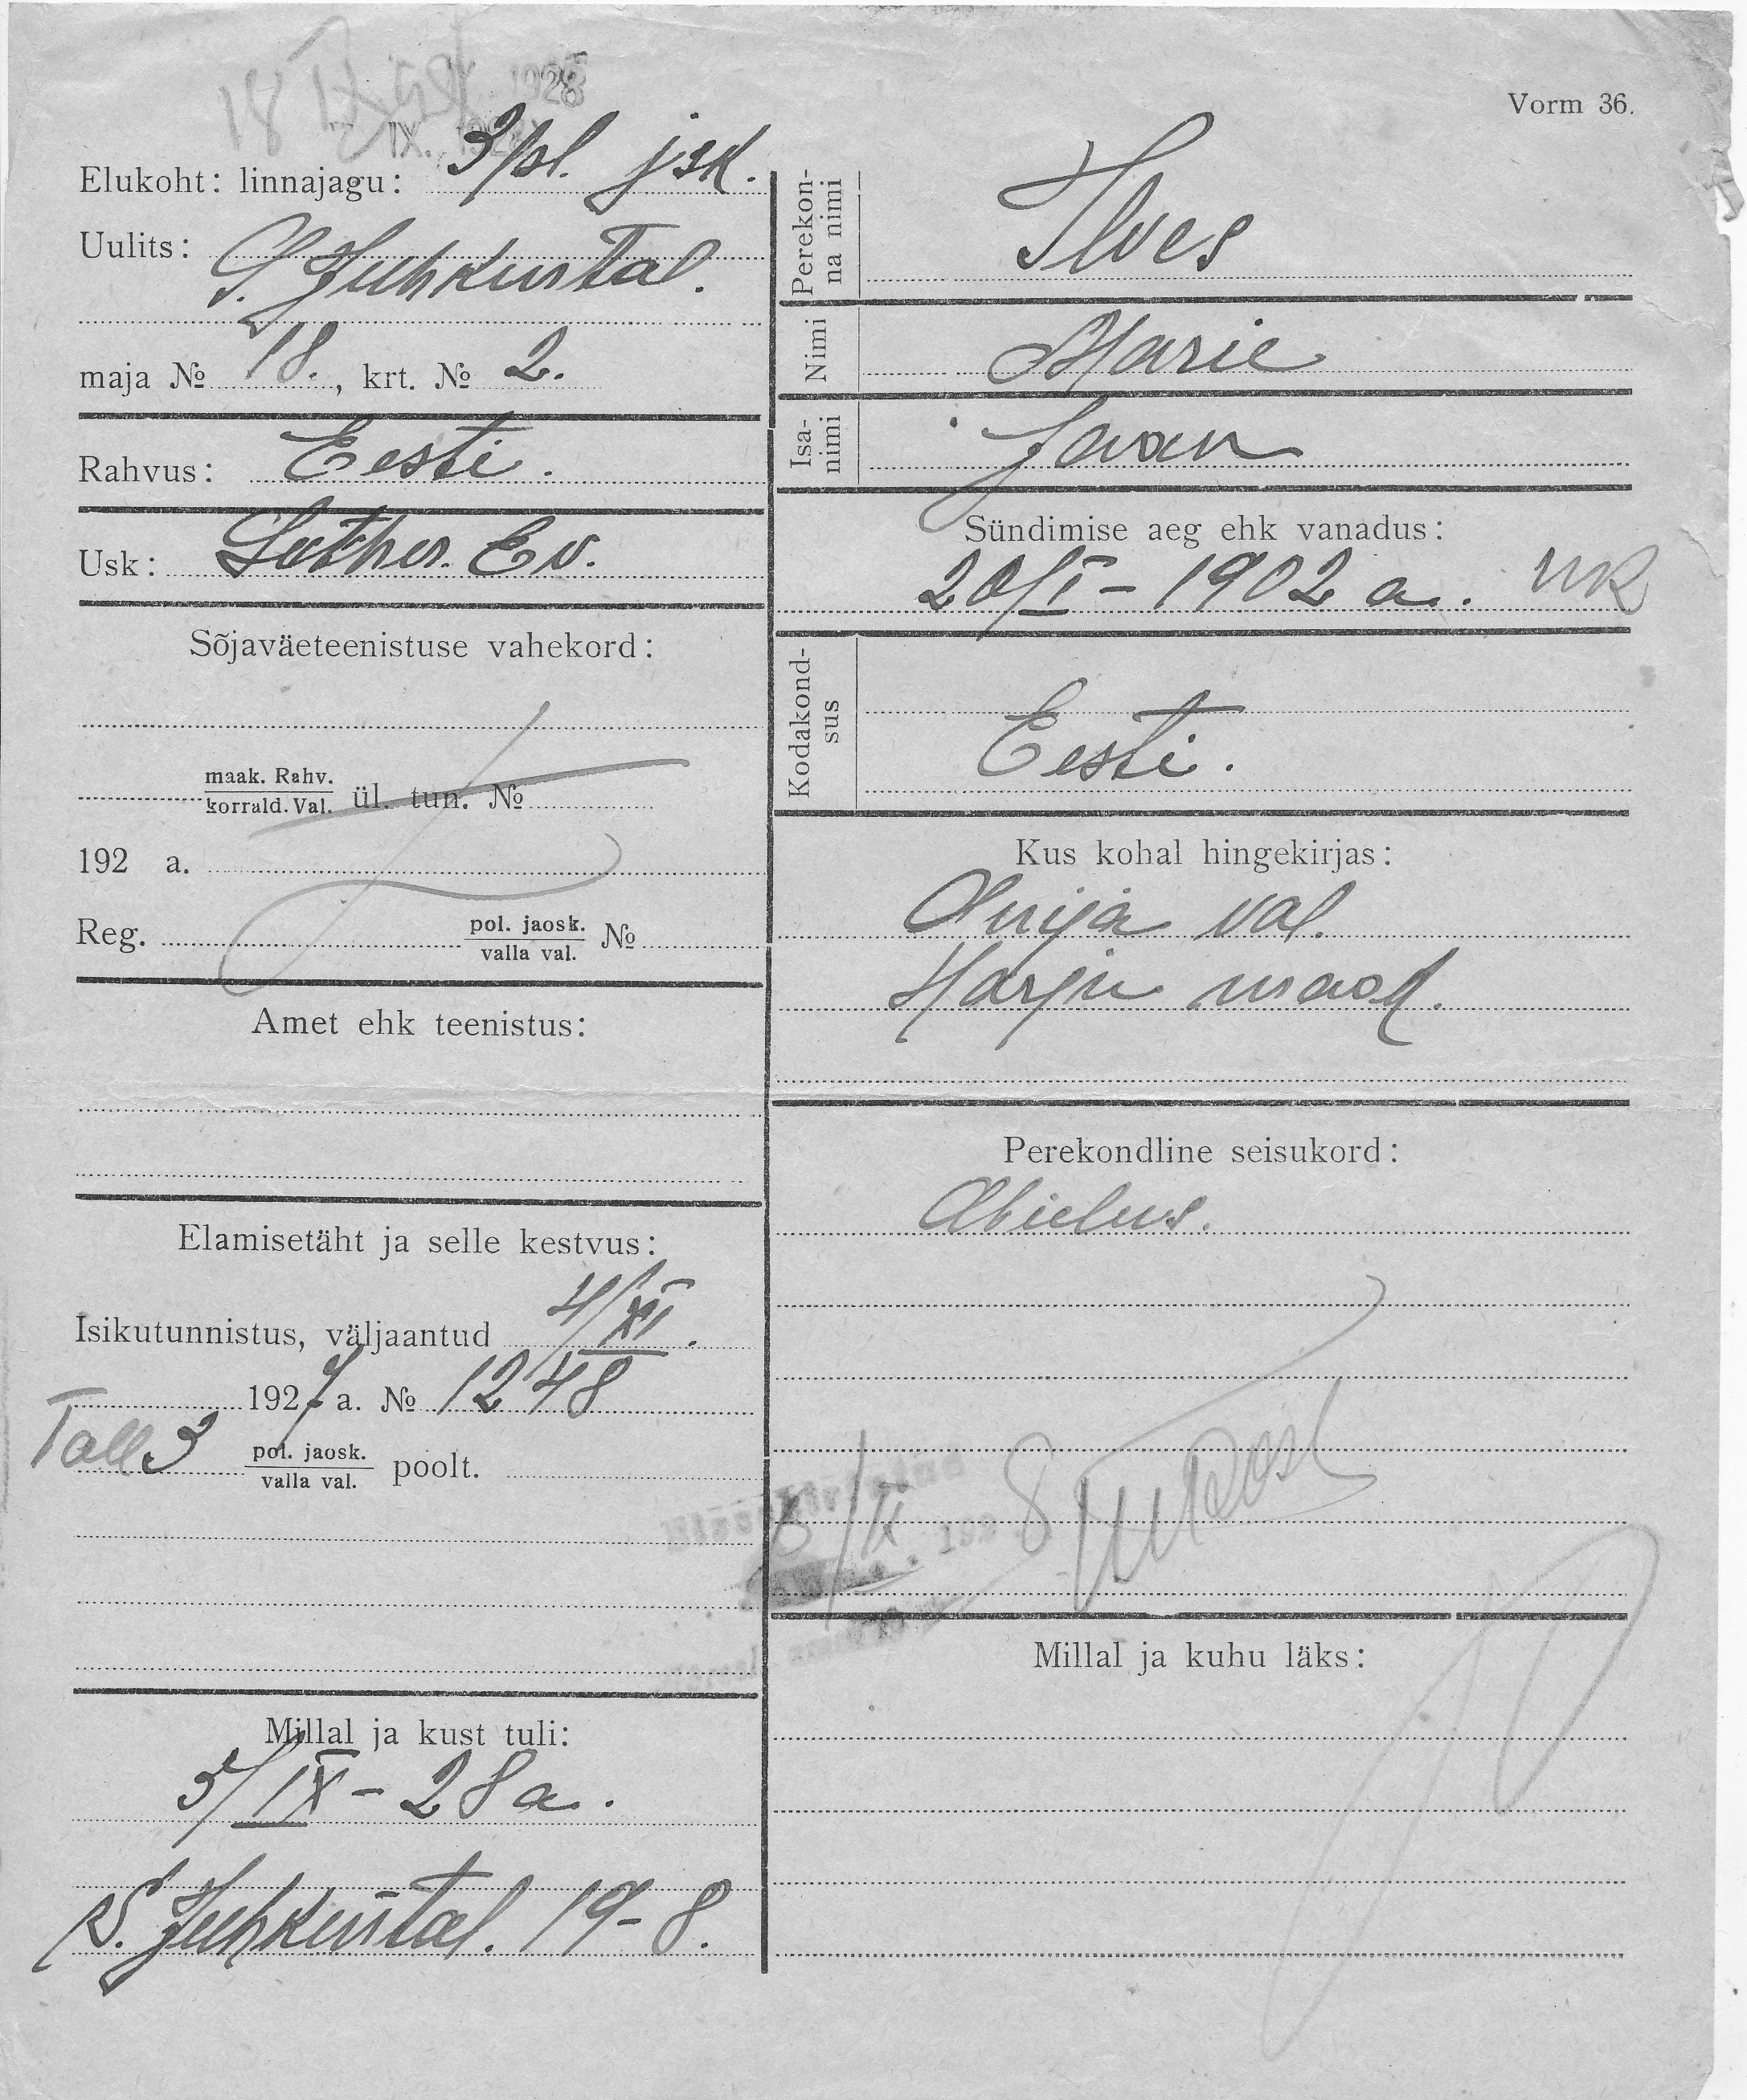 Vorm 36.
1928
IX. 1928
Elukoht: linnajagu: 3 pl. jsk.
Uulits: S. Juhkental.
maja № 18., krt. № 2.
Rahvus: Eesti.
Usk: Luther. Ev.
Sõjaväeteenistuse vahekord:
maak. Rahv.
korrald. Val. ül. tun. №
192 a.
Reg. pol. jaosk.
valla val. №
Amet ehk teenistus:
Elamisetäht ja selle kestvus:
Isikutunnistus, väljaantud 4/XI.
1927 a. № 1248
Tall 3 pol. jaosk.
valla val. poolt.
Millal ja kust tuli:
5/IX - 28 a.
S. Juhkental. 19-8.
Perekon-
na nimi Ilves
Nimi Marie
Isa-
nimi Jaan
Sündimise aeg ehk vanadus:
20/I - 1902 a.
Kodakond-
sus Eesti.
Kus kohal hingekirjas:
Anija val.
Harju maak.
Perekondline seisukord:
Abielus.
192 8
Millal ja kuhu läks: